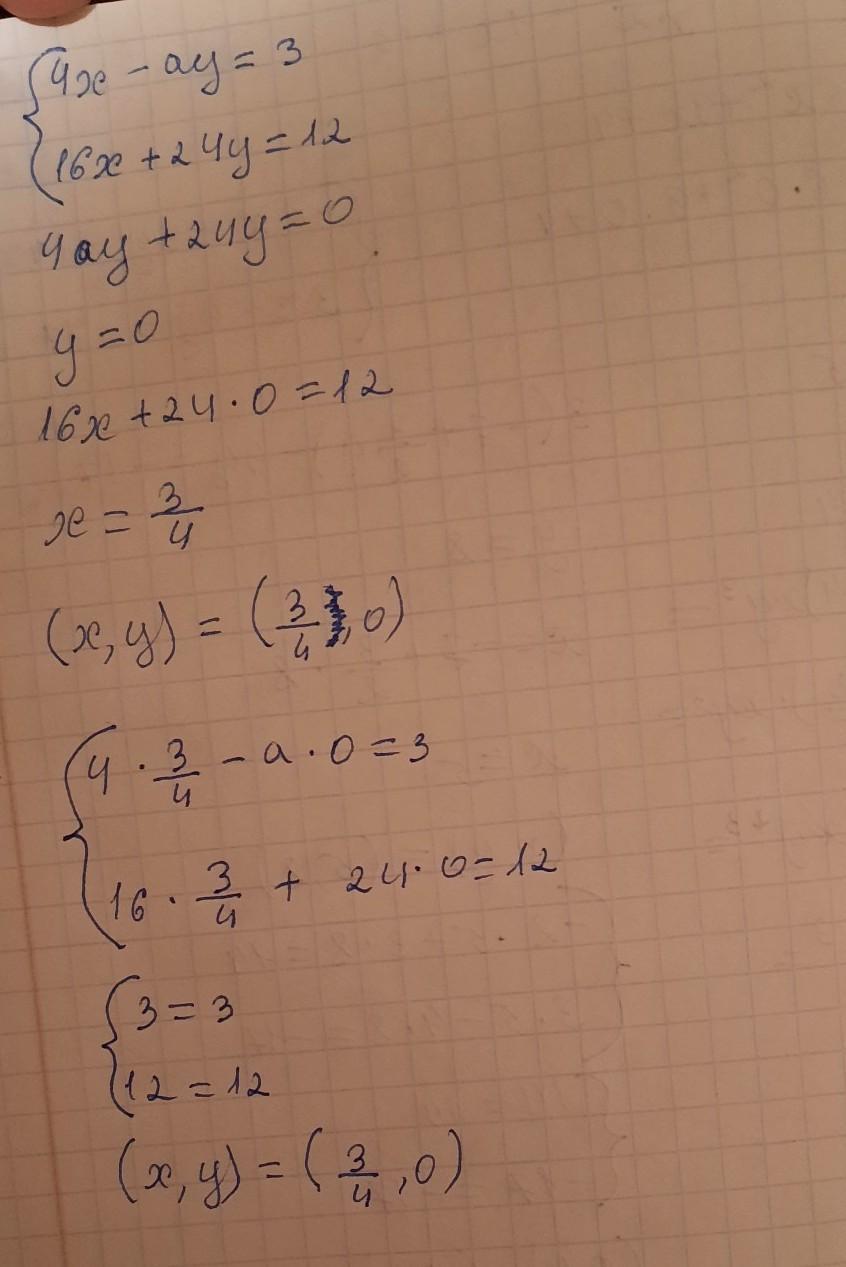 {4x - ay = 3
{16x + 24y = 12
4ay + 24y = 0
y = 0
16x + 24 · 0 = 12
x = 3/4
(x, y) = (3/4, 0)
{4 · 3/4 - a · 0 = 3
{16 · 3/4 + 24 · 0 = 12
{3 = 3
{12 = 12
(x, y) = (3/4, 0)